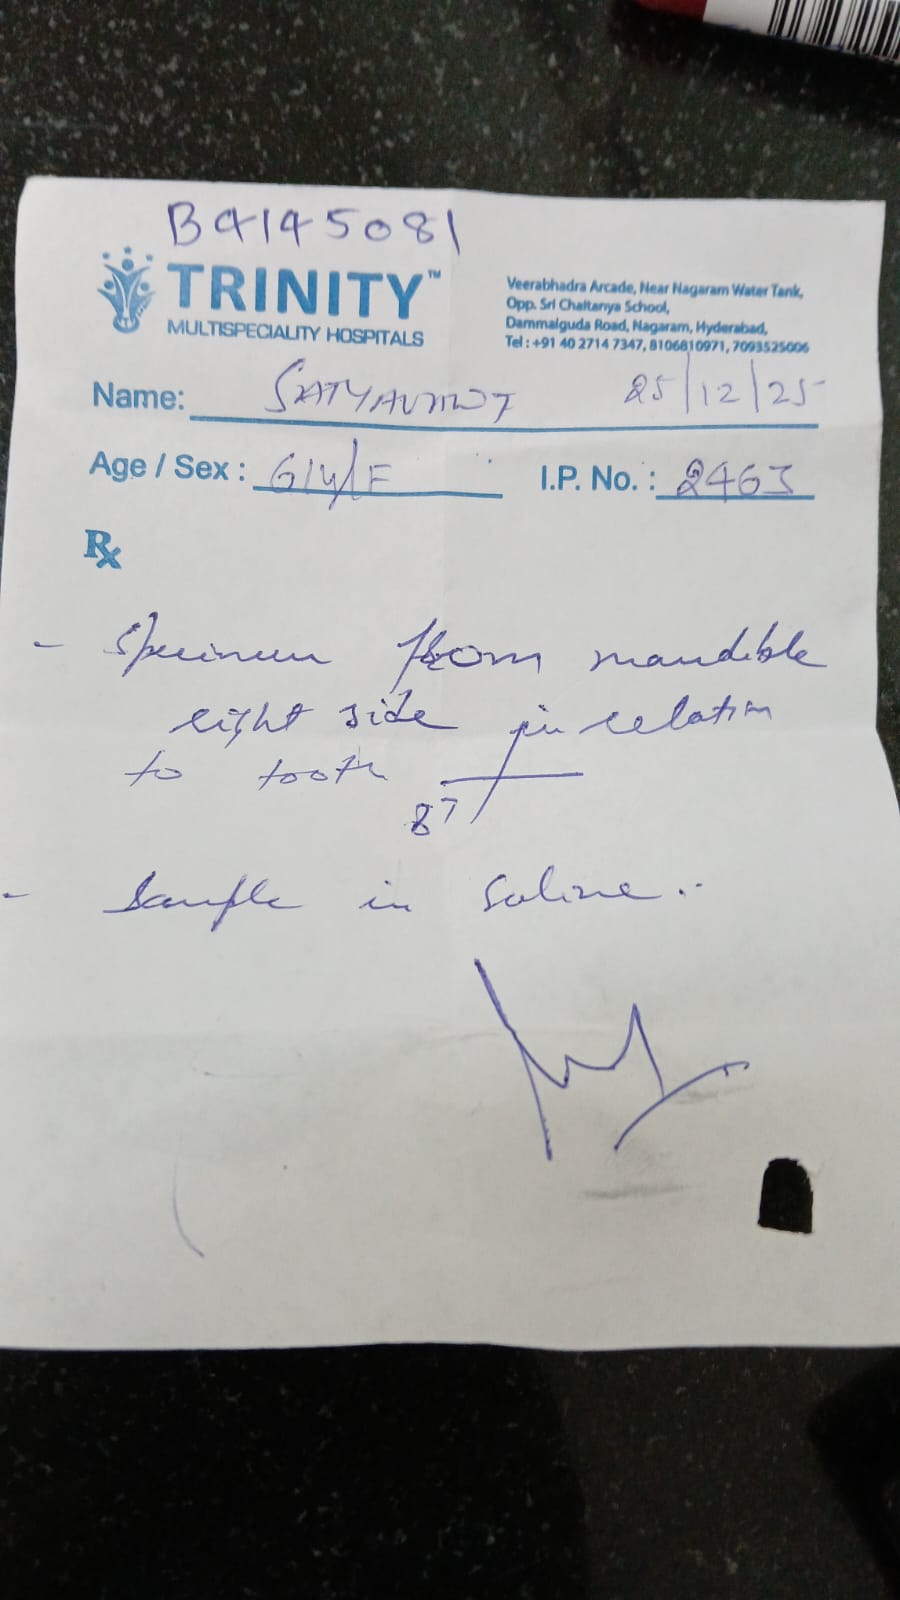 B4145081
TRINITY™
MULTISPECIALITY HOSPITALS
Veerabhadra Arcade, Near Nagaram Water Tank,
Opp. Sri Chaitanya School,
Dammaiguda Road, Nagaram, Hyderabad,
Tel : +91 40 2714 7347, 8106810971, 7093525006
Name: 25/12/25
Age / Sex : 61y/F I.P. No. : 2463
Rx
- Specimen from mandible
right side in relation
to tooth
87
- Sample in Saline..